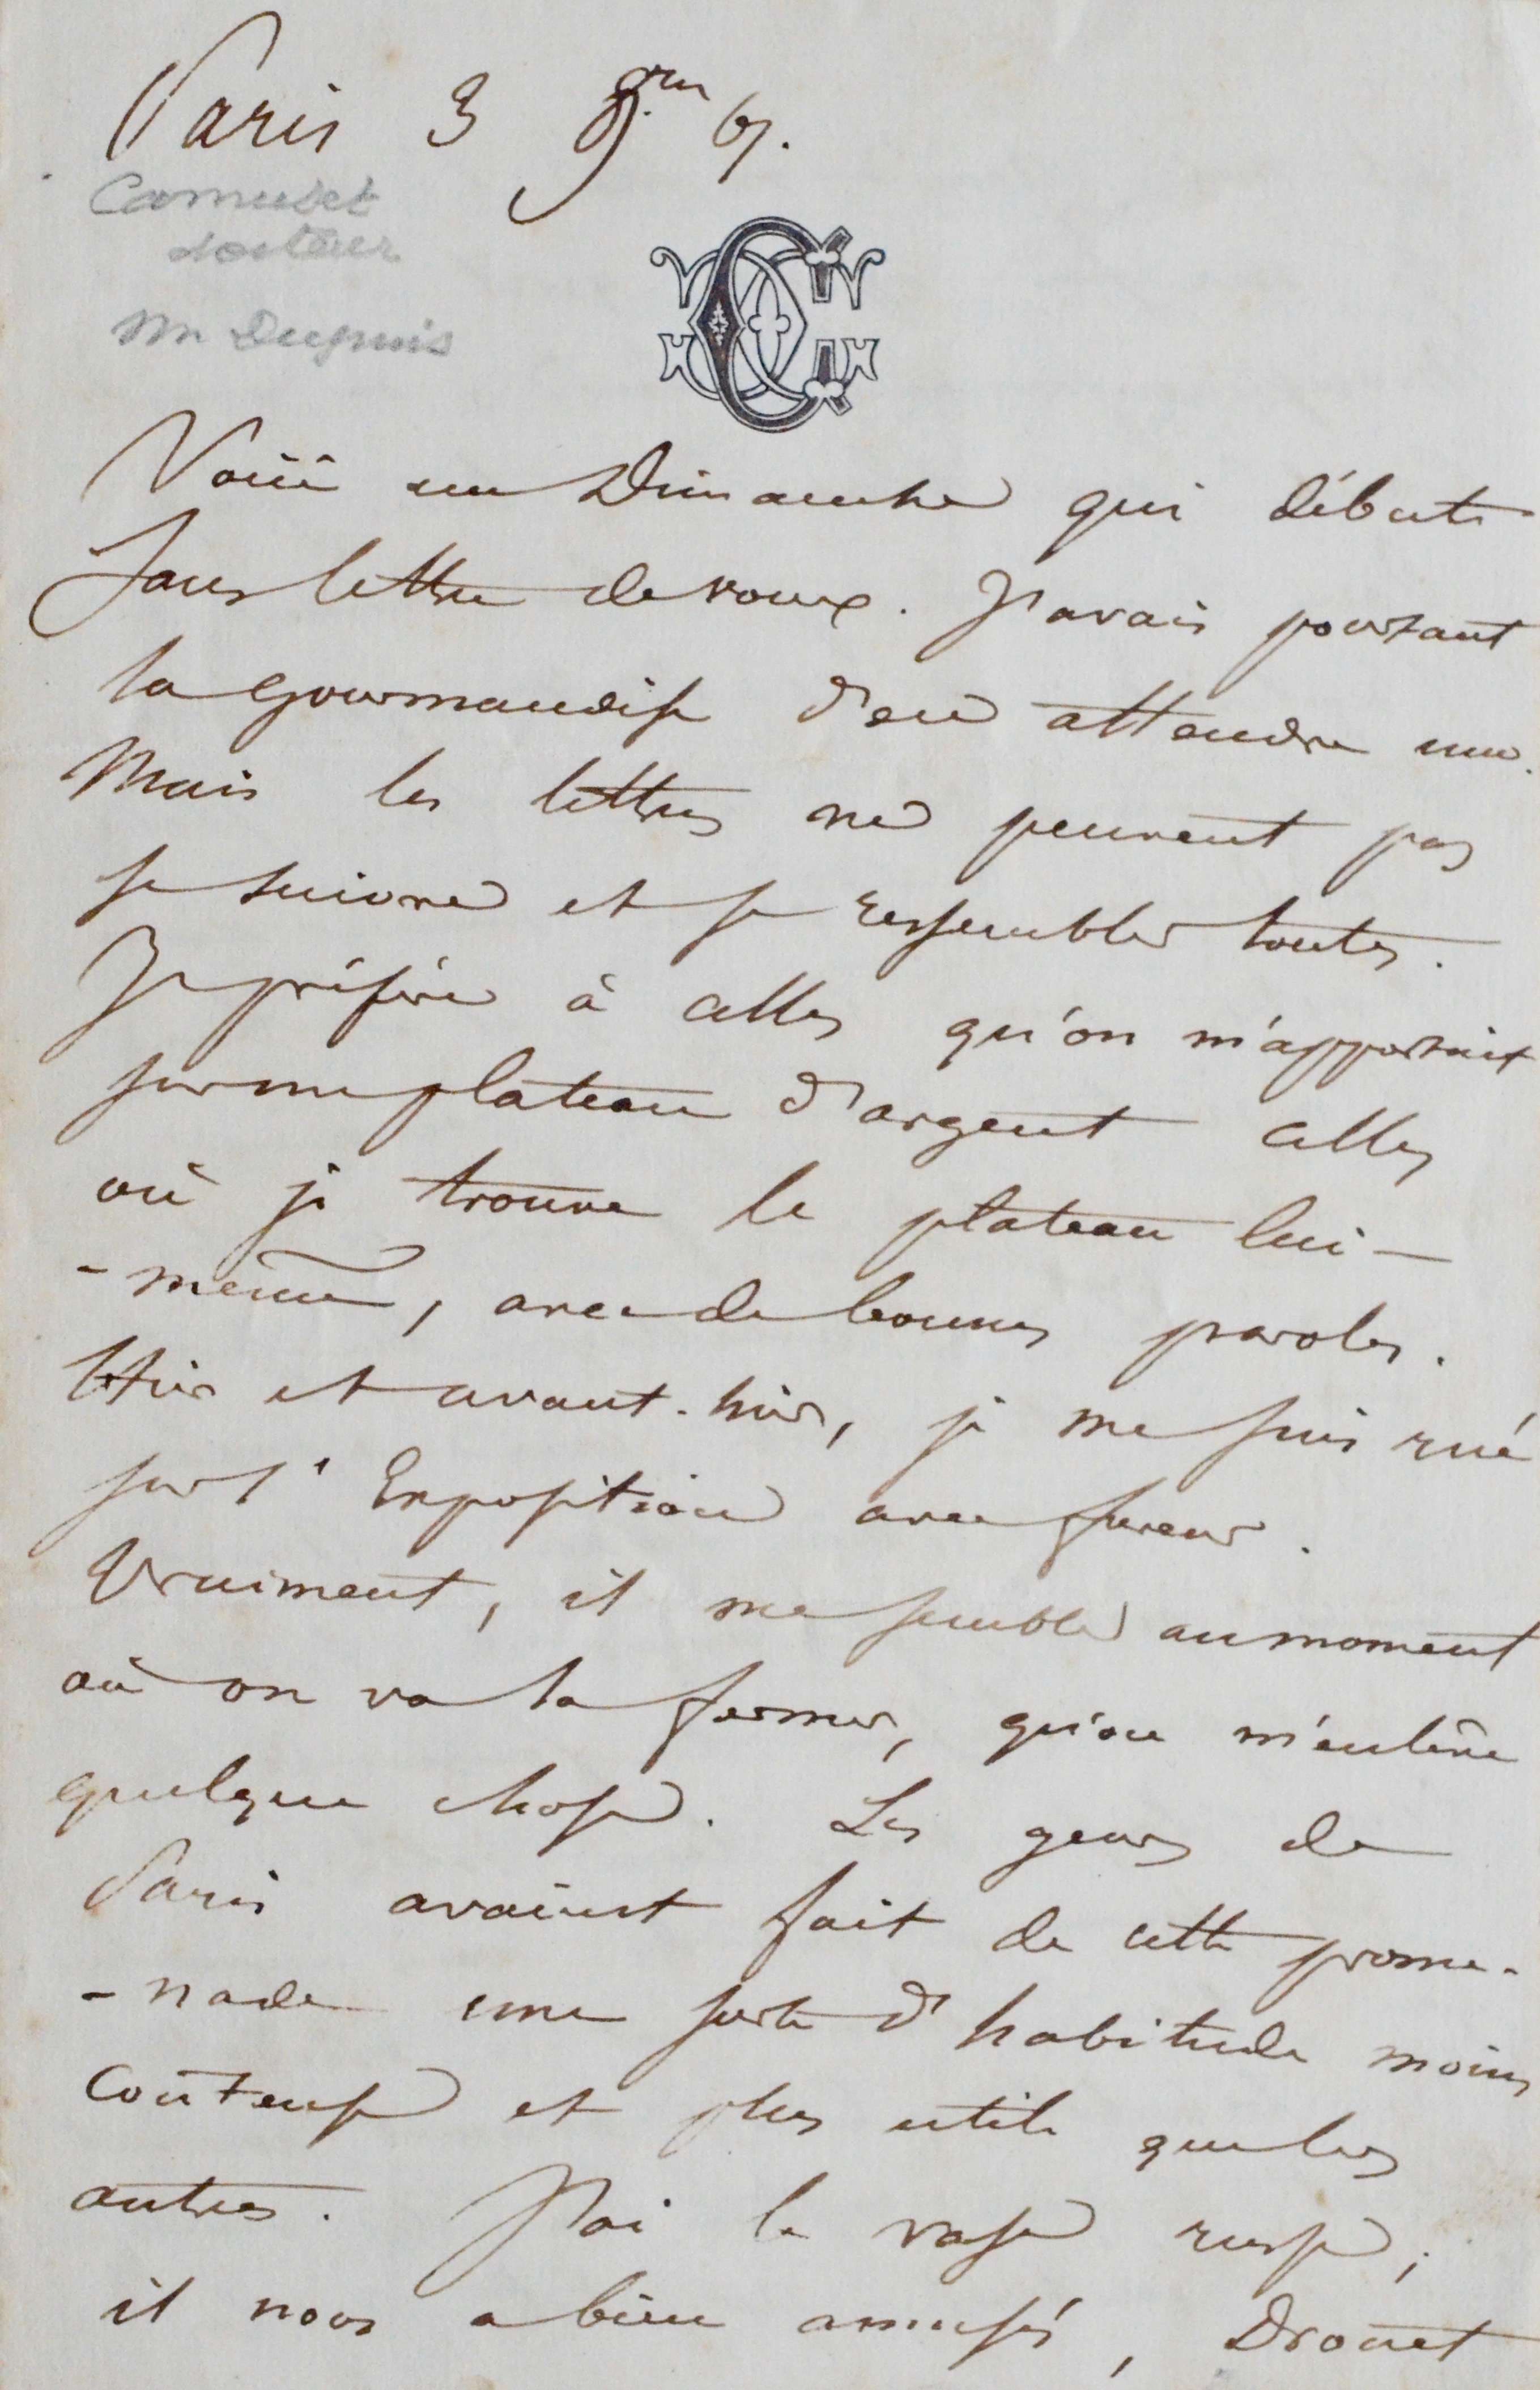 Paris 3 9bre 67.
Camuset
docteur
Mr Dupuis
Voici un Dimanche qui débute
sans lettre de vous. J'avais pourtant
la gourmandise d'en attendre une.
Mais les lettres ne peuvent pas
se suivre et se ressembler toutes.
Je préfère à celles qu'on m'apportait
sur un plateau d'argent celles
où je trouve le plateau lui-
-même, avec de bonnes paroles.
Hier et avant-hier, je me suis rué
sur l'Exposition avec fureur.
Vraiment, il me semble au moment
où on va la fermer, qu'on m'enlève
quelque chose. Les gens de
Paris avaient fait de cette prome-
-nade une sorte d'habitude moins
coûteuse et plus utile que les
autres. J'ai le vase russe;
il nous a bien amusés, Drouet